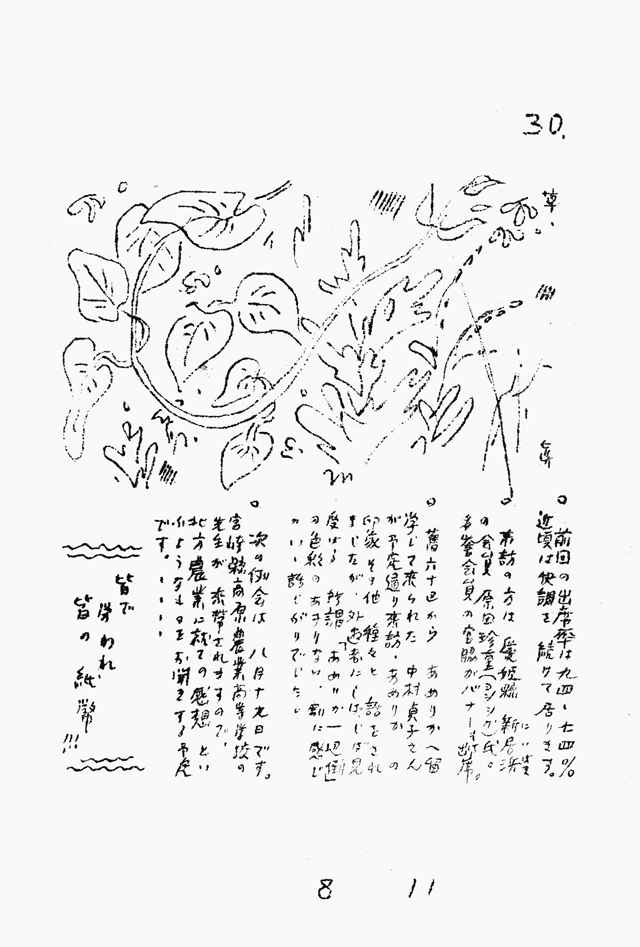 30.
草
前回の出席率は九四・七四%
近頃は快調を続けて居ります。
来訪の方は愛媛縣新居浜
にいはま
の会員原田珍重(ヨシシゲ)氏。
出席。
舊六十区から あめりかへ留
学して来られた 中村貞子さん
が予定通り来訪、あめりかの
印象その他種々と 話をされ
ましたが、外遊者にしばしば見
受ける 所謂「あめりか一辺倒」
の色彩のあまりない、割に感じ
のいい話しぶりでした。
次の例会は 八月十九日です。
宮崎縣高原農業高等学校の
先生が 来帯されますので、
北方農業に就ての感想 とい
ふようなものをお聞きする予定
です。・・・・
皆で
労われ
皆の 紙幣
!!!
8 11